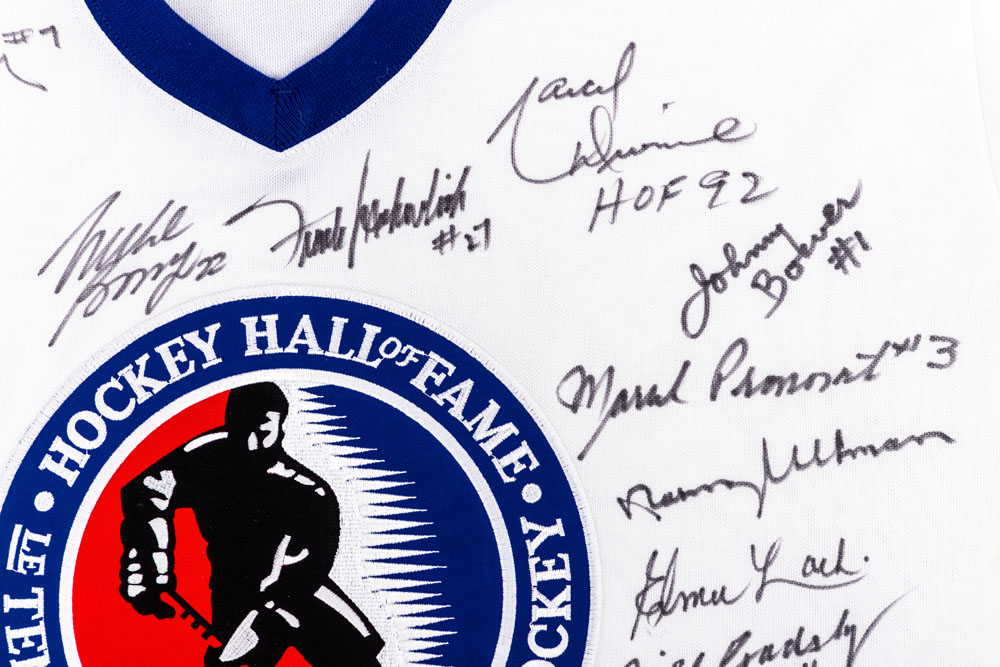 #7
Marcel
Dionne
HOF 92
Mike
Bossy 22
Frank Mahovlich
#27
Johnny
Bower
#1
Marcel Pronovost #3
Norm Ullman
Elmer Lach.
Bill Quackenbush
HOCKEY HALL OF FAME • HOCKEY
• LE TE